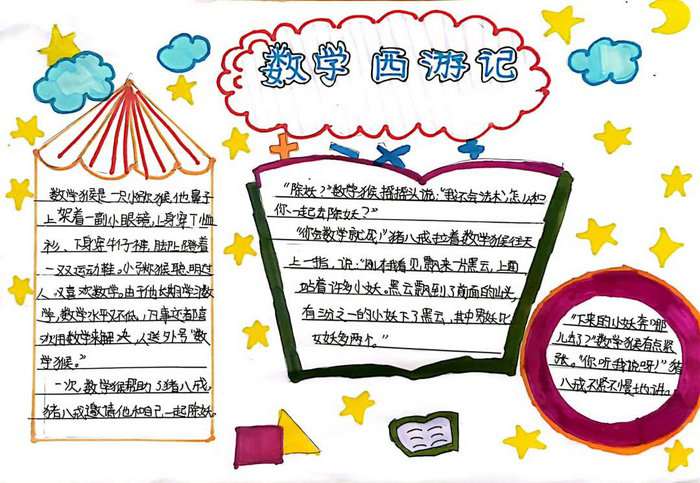 数学 西游记
数学猴是一只小弥猴他鼻子
上架着一副小眼镜,上身穿T恤
衫、下身穿牛仔裤,脚上蹬着
一双运动鞋。小弥猴聪明过
人。又喜欢数学。由于他长期学习数
学,数学水平又不低,凡事
欢用数学来解决,人送外号"数
学猴。"
一次,数学猴帮助了猪八戒,
猪八戒邀请他和自己一起除妖。
"除妖?"数学猴摇摇头说:"我不会法术,怎么和
你一起去除妖?"
"你会数学就成!"猪八戒拉着数学猴往天
上一指,说:"刚才我看见飘来一片黑云,上面
站着许多小妖。黑云飘到了前面的山头,
有三分之一的小妖下了黑云,其中男妖比
女妖多两个。"
"下来的小妖奔哪
儿去了?"数学猴有点紧
张。"你听我说呀!"猪
八戒不紧不慢地讲。